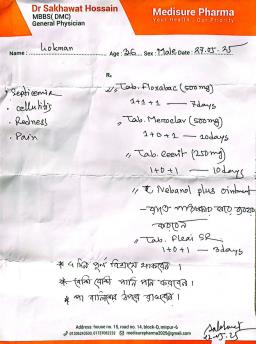 Dr Sakhawat Hossain
MBBS( DMC)
General Physician
Medisure Pharma
Your Health , Our Priority
Name : Lokman Age : 26 Sex : Male Date : 27.05.25
Rx
Septicemia
. cellulitis
. Redness
. Pain
Tab. Floxabac (500mg)
1+1+1 — 7days
Tab. Meroclav (500mg)
1+0+2 — 10days
Tab. ceevit (250mg)
1+0+1 — 10days
Nebanol plus ointment
Tab. Flexi SR
1+0+1 — 3days
* ৭ দিন পূর্ণ বিশ্রামে থাকবেন ।
* বেশি বেশি পানি পান করবেন ।
* পা বালিশের উপরে রাখবেন ।
Address: house no. 15, road no. 14, block-D, mirpur-6
medisurepharma2025@gmail.com